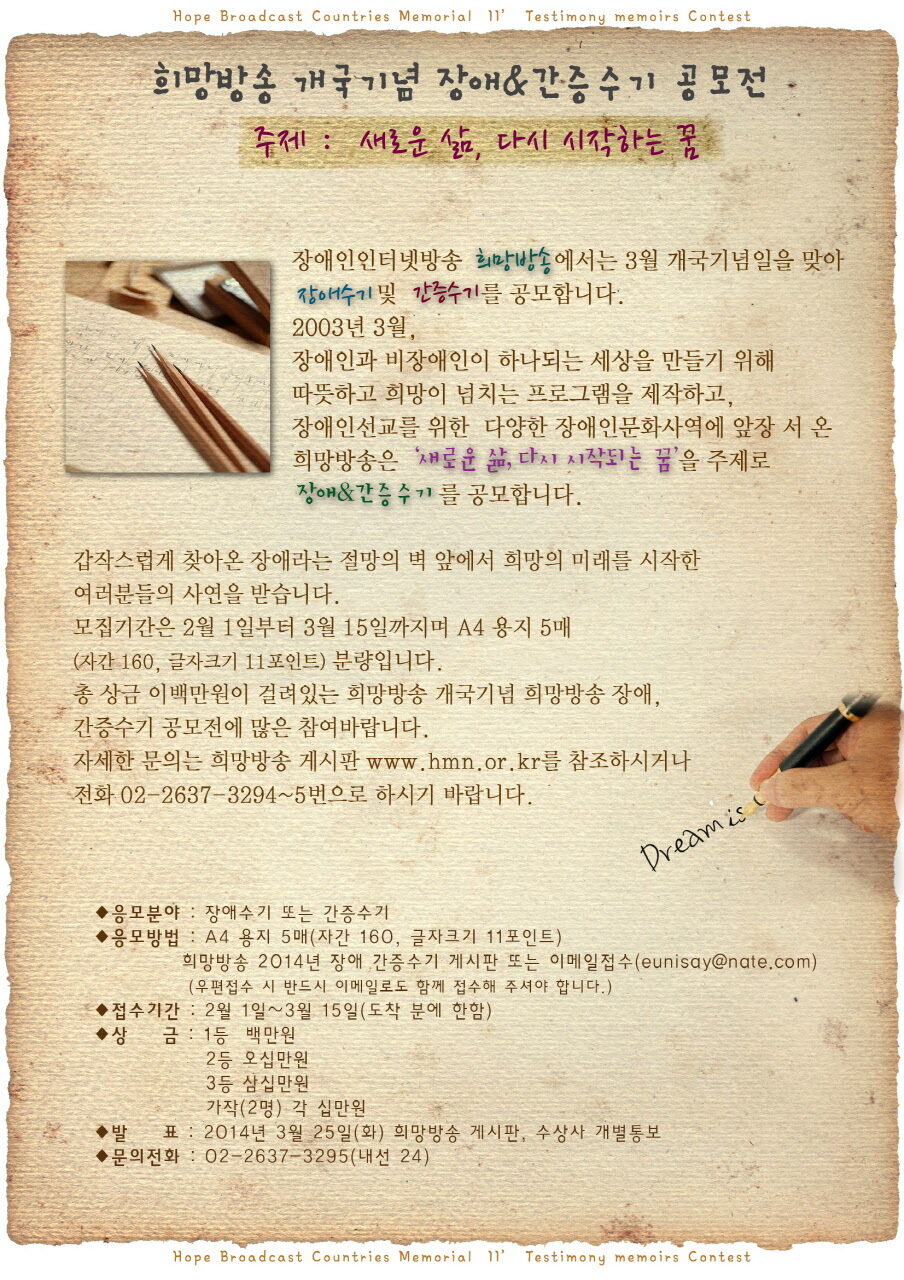 Hope Broadcast Countries Memorial 11' Testimony memoirs Contest
희망방송 개국기념 장애&간증수기 공모전
주제 : 새로운 삶, 다시 시작하는 꿈
장애인인터넷방송 희망방송에서는 3월 개국기념일을 맞아
장애수기 및 간증수기를 공모합니다.
2003년 3월,
장애인과 비장애인이 하나되는 세상을 만들기 위해
따뜻하고 희망이 넘치는 프로그램을 제작하고,
장애인선교를 위한 다양한 장애인문화사역에 앞장 서 온
희망방송은 '새로운 삶, 다시 시작되는 꿈'을 주제로
장애&간증수기를 공모합니다.
갑작스럽게 찾아온 장애라는 절망의 벽 앞에서 희망의 미래를 시작한
여러분들의 사연을 받습니다.
모집기간은 2월 1일부터 3월 15일까지며 A4 용지 5매
(자간 160, 글자크기 11포인트) 분량입니다.
총 상금 이백만원이 걸려있는 희망방송 개국기념 희망방송 장애,
간증수기 공모전에 많은 참여바랍니다.
자세한 문의는 희망방송 게시판 www.hmn.or.kr를 참조하시거나
전화 02-2637-3294~5번으로 하시기 바랍니다.
Dream is
◆응모분야 : 장애수기 또는 간증수기
◆응모방법 : A4 용지 5매(자간 160, 글자크기 11포인트)
희망방송 2014년 장애 간증수기 게시판 또는 이메일접수(eunisay@nate.com)
(우편접수 시 반드시 이메일로도 함께 접수해 주셔야 합니다.)
◆접수기간 : 2월 1일~3월 15일(도착 분에 한함)
◆상 금 : 1등 백만원
2등 오십만원
3등 삼십만원
가작(2명) 각 십만원
◆발 표 : 2014년 3월 25일(화) 희망방송 게시판, 수상사 개별통보
◆문의전화 : 02-2637-3295(내선 24)
Hope Broadcast Countries Memorial 11' Testimony memoirs Contest